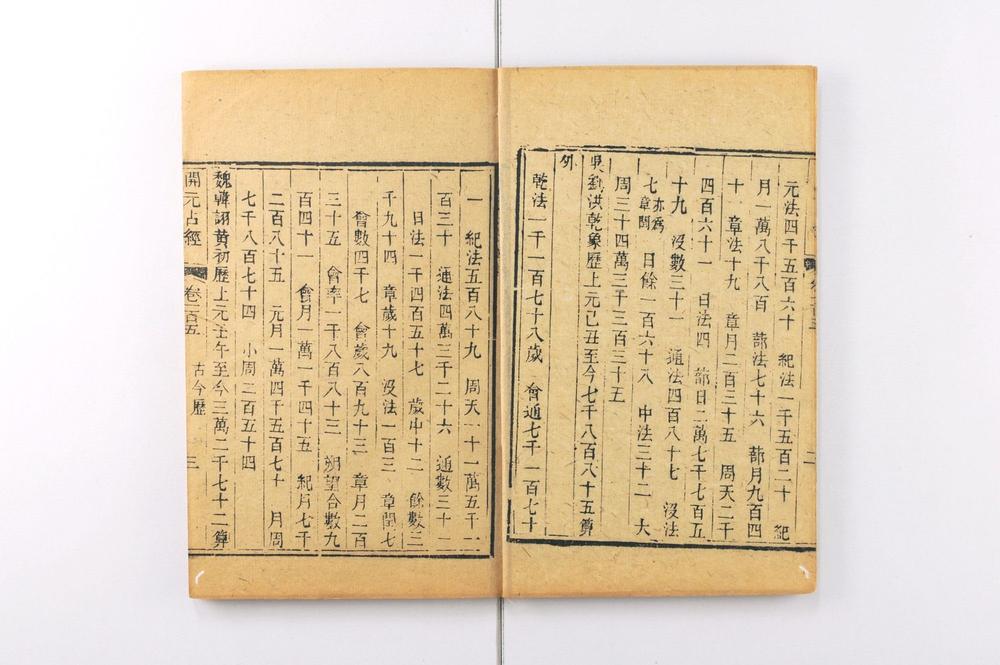 元法四千五百六十　紀法一千五百二十　紀
月一萬八千八百　蔀法七十六　蔀月九百四
十　章法十九　章月二百三十五　周天二千
四百六十一　日法四　蔀日二萬七千七百五
十九　沒數三十一　通法四百八十七　沒法
七亦為章閏　日餘一百六十八　中法三十二　大
周三十四萬三千三百三十五
吳劉洪乾象歷上元己丑至今七千八百八十五算
外
乾法一千一百七十八歲　會通七千一百七十
二
一　紀法五百八十九　周天二十一萬五千一
百三十　通法四萬三千二十六　通數三十一
日法一千四百五十七　歲中十二　餘數三
千九十四　章歲十九　沒法一百三　章閏七
會數四千七　會歲八百九十三　章月二百
三十五　會率一千八百八十三　朔望合數九
百四十一　會月一萬一千四十五　紀月七千
二百八十五　元月一萬四千五百七十　月周
七千八百七十四　小周二百五十四
魏韓翊黃初歷上元壬午至今三萬二千七十二算
開元占經　卷一百五　古今歷　三